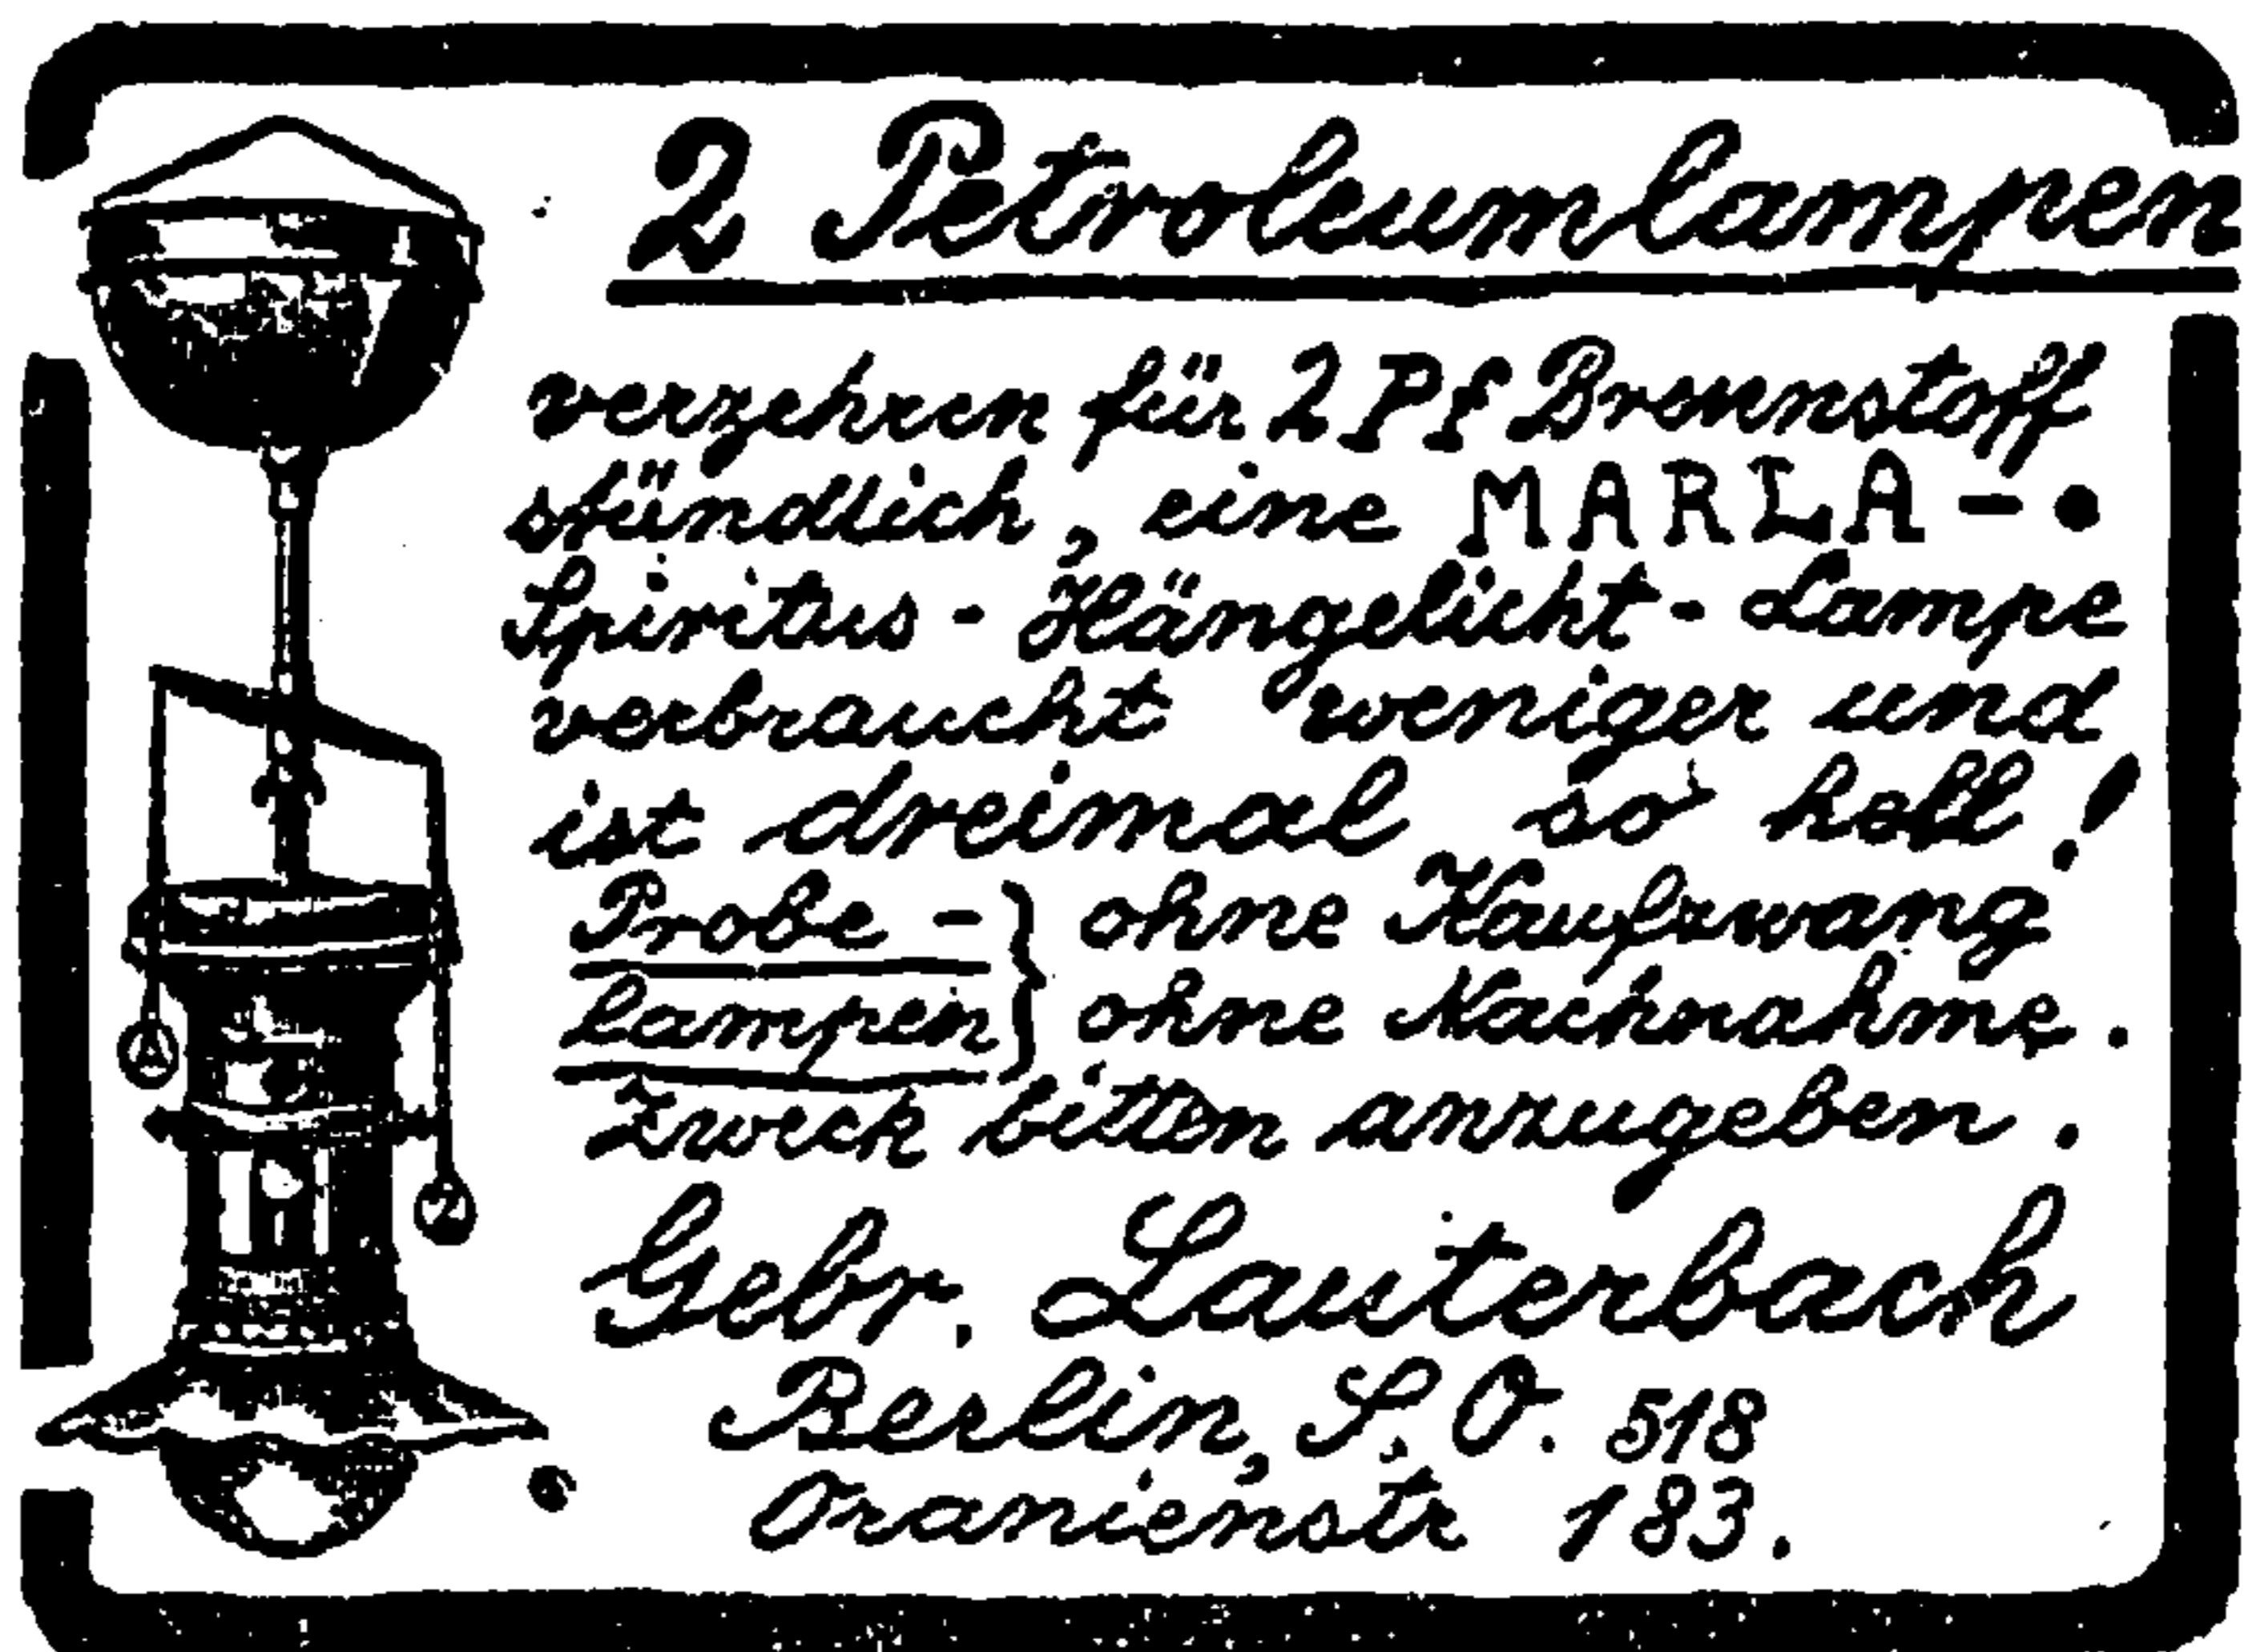 2 Petroleumlampen
verzehren für 2 Pf Brennstoff
stündlich, eine MARLA-
Spiritus-Hängelicht-Lampe
verbraucht weniger und
ist dreimal so hell!
Probe- } ohne Kaufzwang
lampen } ohne Nachnahme.
Zweck bitten anzugeben.
Gebr. Lauterbach
Berlin, S.O. 518
Oranienstr 183.